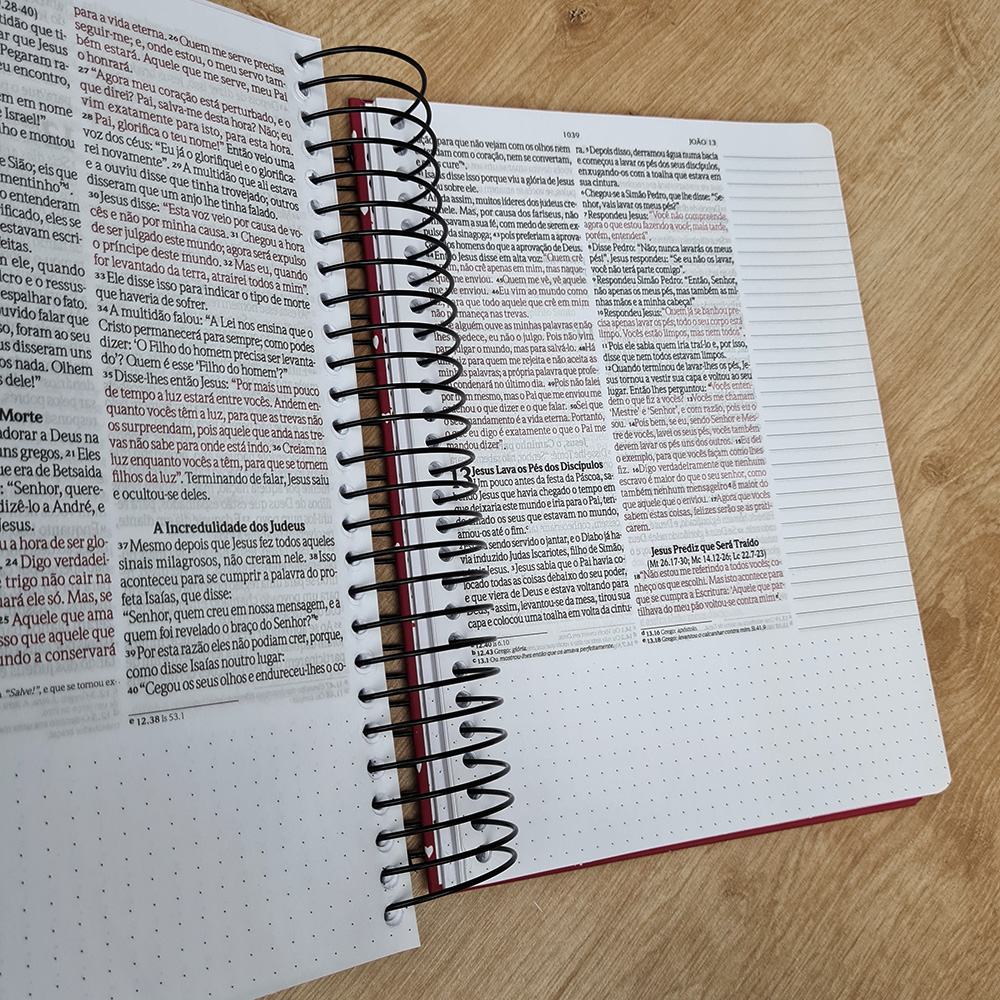 .28-40)
tidão que ti-
ar que Jesus
Pegaram ra-
eu encontro,
em em nome
Israel!"
ho e montou
e Sião; eis que
mentinho"ᵈ
o entenderam
ificado, eles se
estavam escri-
feitas.
m ele, quando
lcro e o ressus-
espalhar o fato.
ouvido falar que
so, foram ao seu
us disseram uns
os nada. Olhem
s dele!"
Morte
adorar a Deus na
uns gregos. 21 Eles
ue era de Betsaida
: "Senhor, quere-
dizê-lo a André, e
Jesus.
u a hora de ser glo-
24 Digo verdadei-
trigo não cair na
nará ele só. Mas, se
25 Aquele que ama
sso que aquele que
undo a conservará
"Salve!", e que se tornou ex-
para a vida eterna. 26 Quem me serve precisa
seguir-me; e, onde estou, o meu servo tam-
bém estará. Aquele que me serve, meu Pai
o honrará.
27 "Agora meu coração está perturbado, e o
que direi? Pai, salva-me desta hora? Não; eu
vim exatamente para isto, para esta hora.
28 Pai, glorifica o teu nome!" Então veio uma
voz dos céus: "Eu já o glorifiquei e o glorifica-
rei novamente". 29 A multidão que ali estava
e a ouviu disse que tinha trovejado; outros
disseram que um anjo lhe tinha falado.
30 Jesus disse: "Esta voz veio por causa de vo-
cês e não por minha causa. 31 Chegou a hora
de ser julgado este mundo; agora será expulso
o príncipe deste mundo. 32 Mas eu, quando
for levantado da terra, atrairei todos a mim".
33 Ele disse isso para indicar o tipo de morte
que haveria de sofrer.
34 A multidão falou: "A Lei nos ensina que o
Cristo permanecerá para sempre; como podes
dizer: 'O Filho do homem precisa ser levanta-
do'? Quem é esse 'Filho do homem'?"
35 Disse-lhes então Jesus: "Por mais um pouco
de tempo a luz estará entre vocês. Andem en-
quanto vocês têm a luz, para que as trevas não
os surpreendam, pois aquele que anda nas tre-
vas não sabe para onde está indo. 36 Creiam na
luz enquanto vocês a têm, para que se tornem
filhos da luz". Terminando de falar, Jesus saiu
e ocultou-se deles.
A Incredulidade dos Judeus
37 Mesmo depois que Jesus fez todos aqueles
sinais milagrosos, não creram nele. 38 Isso
aconteceu para se cumprir a palavra do pro-
feta Isaías, que disse:
"Senhor, quem creu em nossa mensagem, e a
quem foi revelado o braço do Senhor?"ᵉ
39 Por esta razão eles não podiam crer, porque,
como disse Isaías noutro lugar:
40 "Cegou os seus olhos e endureceu-lhes o co-
e 12.38 Is 53.1
1039
JOÃO 13
para que não vejam com os olhos nem
com o coração, nem se convertam,
cure".
disse isso porque viu a glória de Jesus
sobre ele.
assim, muitos líderes dos judeus cre-
nele. Mas, por causa dos fariseus, não
sua fé, com medo de serem ex-
da sinagoga; 43 pois preferiam a aprova-
homens do que a aprovação de Deus.
Jesus disse em alta voz: "Quem crê
não crê apenas em mim, mas naque-
me enviou. 45 Quem me vê, vê aquele
me enviou. 46 Eu vim ao mundo como
para que todo aquele que crê em mim
permaneça nas trevas.
alguém ouve as minhas palavras e não
obedece, eu não o julgo. Pois não vim
julgar o mundo, mas para salvá-lo. 48 Há
para quem me rejeita e não aceita as
palavras; a própria palavra que profe-
condenará no último dia. 49 Pois não falei
mesmo, mas o Pai que me enviou me
o que dizer e o que falar. 50 Sei que
mandamento é a vida eterna. Portanto,
eu digo é exatamente o que o Pai me
mandou dizer".
13 Jesus Lava os Pés dos Discípulos
Um pouco antes da festa da Páscoa, sa-
Jesus que havia chegado o tempo em
deixaria este mundo e iria para o Pai, ten-
amado os seus que estavam no mundo,
amou-os até o fim.
sendo servido o jantar, e o Diabo já ha-
via induzido Judas Iscariotes, filho de Simão,
Jesus. 3 Jesus sabia que o Pai havia co-
locado todas as coisas debaixo do seu poder,
e que viera de Deus e estava voltando para
Deus; 4 assim, levantou-se da mesa, tirou sua
capa e colocou uma toalha em volta da cintu-
a 12.40 Is 6.10
b 12.43 Grego: glória.
c 13.1 Ou mostrou-lhes então que os amava perfeitamente.
ra. 5 Depois disso, derramou água numa bacia
e começou a lavar os pés dos seus discípulos,
enxugando-os com a toalha que estava em
sua cintura.
6 Chegou-se a Simão Pedro, que lhe disse: "Se-
nhor, vais lavar os meus pés?"
7 Respondeu Jesus: "Você não compreende
agora o que estou fazendo a você; mais tarde,
porém, entenderá".
8 Disse Pedro: "Não; nunca lavarás os meus
pés!". Jesus respondeu: "Se eu não os lavar,
você não terá parte comigo".
9 Respondeu Simão Pedro: "Então, Senhor,
não apenas os meus pés, mas também as mi-
nhas mãos e a minha cabeça!"
10 Respondeu Jesus: "Quem já se banhou pre-
cisa apenas lavar os pés; todo o seu corpo está
limpo. Vocês estão limpos, mas nem todos".
11 Pois ele sabia quem iria traí-lo e, por isso,
disse que nem todos estavam limpos.
12 Quando terminou de lavar-lhes os pés, Je-
sus tornou a vestir sua capa e voltou ao seu
lugar. Então lhes perguntou: "Vocês enten-
dem o que fiz a vocês? 13 Vocês me chamam
'Mestre' e 'Senhor', e com razão, pois eu o
sou. 14 Pois bem, se eu, sendo Senhor e Mes-
tre de vocês, lavei os seus pés, vocês também
devem lavar os pés uns dos outros. 15 Eu dei
o exemplo, para que vocês façam como eu
fiz. 16 Digo verdadeiramente que nenhum
escravo é maior do que o seu senhor, como
também nenhum mensageiroᵈ é maior do
que aquele que o enviou. 17 Agora que vocês
sabem estas coisas, felizes serão se as prati-
carem.
Jesus Prediz que Será Traído
(Mt 26.17-30; Mc 14.12-26; Lc 22.7-23)
18 "Não estou me referindo a todos vocês; co-
nheço os que escolhi. Mas isto acontece para
que se cumpra a Escritura: 'Aquele que par-
tilhava do meu pão voltou-se contra mim'ᵉ.
d 13.16 Grego: apóstolo.
e 13.18 Grego: levantou o calcanhar contra mim. Sl 41.9